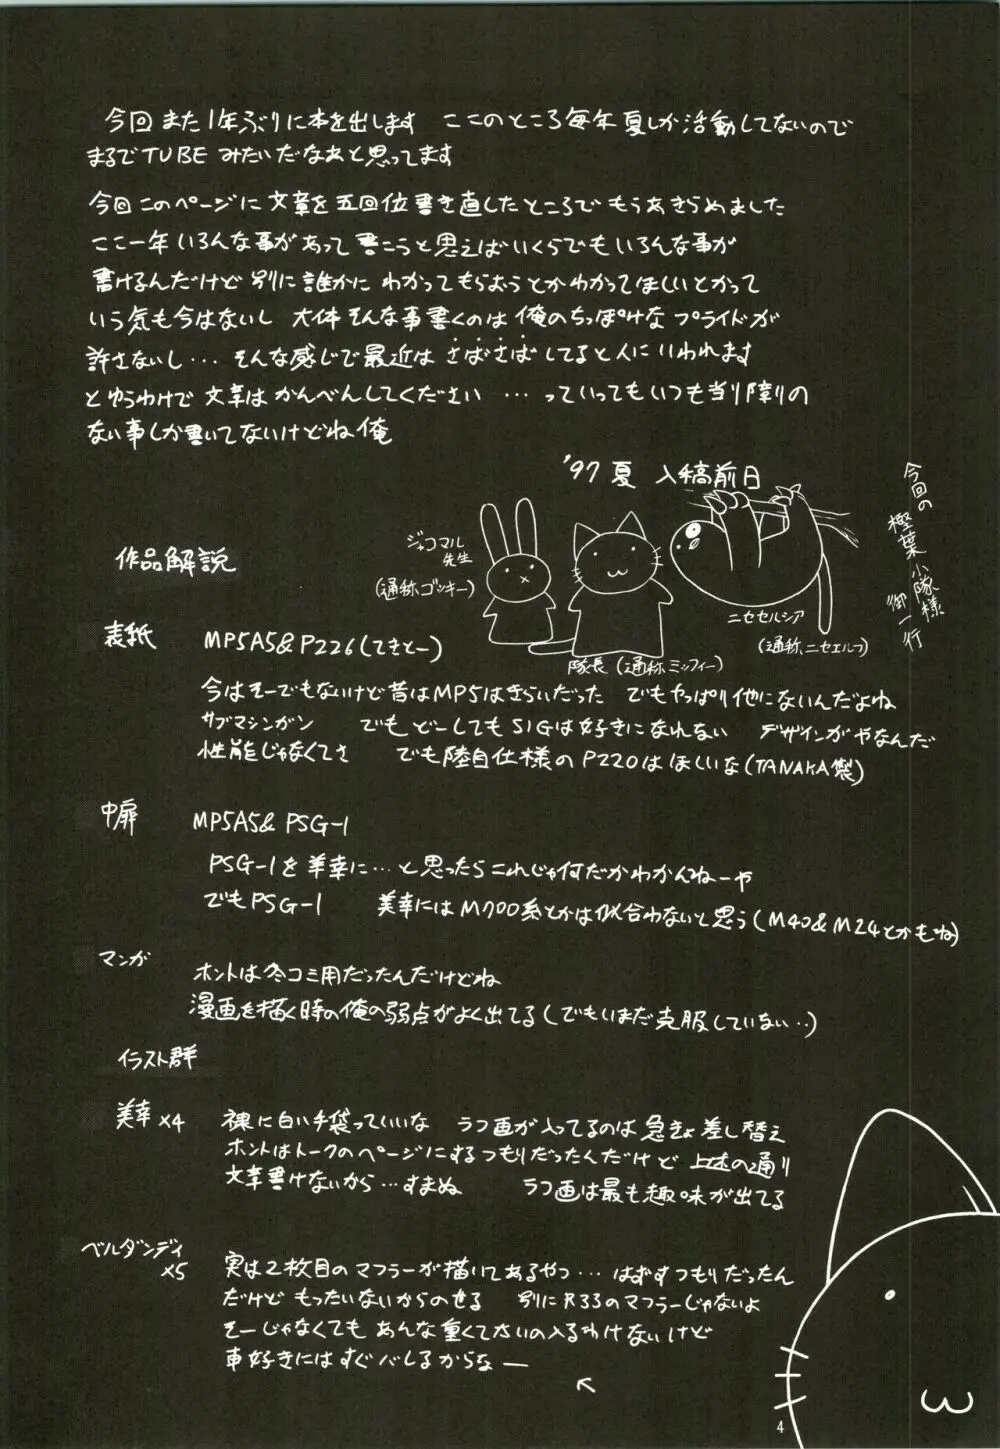 今回また1年ぶりに本を出します ここのところ毎年夏しか活動してないので
まるでTUBEみたいだなぁと思ってます
今回このページに文章を五回位書き直したところでもうあきらめました
ここ一年いろんな事があって書こうと思えばいくらでもいろんな事が
書けるんだけど別に誰かにわかってもらおうとかわかってほしいとかって
いう気も今はないし 大体そんな事書くのは俺のちっぽけなプライドが
許さないし… そんな感じで最近はさばさばしてると人にいわれます
とゆうわけで文章はかんべんしてください …っていってもいつも当り障りの
ない事しか書いてないけどね俺
'97夏 入稿前日
今回の
樫葉小隊様
御一行
ジャコマル
先生
(通称ゴッキー)
隊長(通称ミッフィー)
ニセセルシア
(通称、ニセエルフ)
作品解説
表紙 MP5A5&P226(てきとー)
今はそーでもないけど昔はMP5はきらいだった でもやっぱり他にないんだよね
サブマシンガン でもどーしてもSIGは好きになれない デザインがやなんだ
性能じゃなくてさ でも陸自仕様のP220はほしいな(TANAKA製)
中扉 MP5A5&PSG-1
PSG-1を美幸に…と思ったらこれじゃ何だかわかんねーや
でもPSG-1 美幸にはM700系とかは似合わないと思う(M40&M24とかもね)
マンガ ホントは冬コミ用だったんだけどね
漫画を描く時の俺の弱点がよく出てる(でもいまだ克服していない‥)
イラスト群
美幸×4 裸に白い手袋っていいな ラフ画が入ってるのは急きょ差し替え
ホントはトークのページにするつもりだったんだけど上述の通り
文章書けないから…すまぬ ラフ画は最も趣味が出てる
ベルダンディ
×5
実は2枚目のマフラーが描いてあるやつ…はずすつもりだったん
だけどもったいないからのせる 別にR33のマフラーじゃないよ
そーじゃなくてもあんな重くてさいの入るわけないけど
車好きにはすぐバレるからな─
4